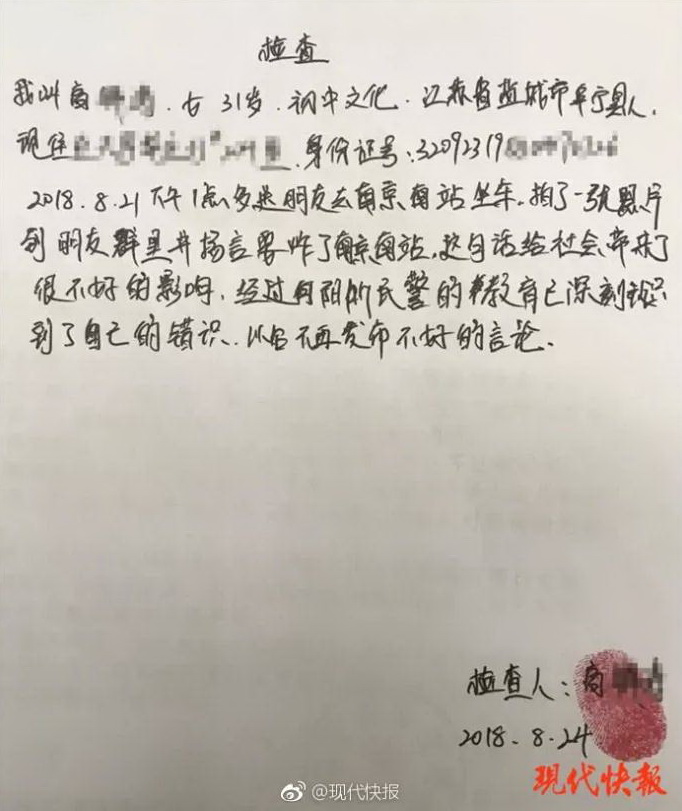 检查
我叫 女 31岁.初中文化.江苏省盐城市阜宁县人,
现住 身份证号:32092319
2018.8.21下午1点多送朋友去南京南站坐车.拍了一张照片
到朋友群里并扬言要炸了南京南站.这句话给社会带来了
很不好的影响.经过向阳所民警的教育已深刻认识
到了自己的错识.以后不再发布不好的言论.
检查人:
2018.8.24
现代快报
@现代快报